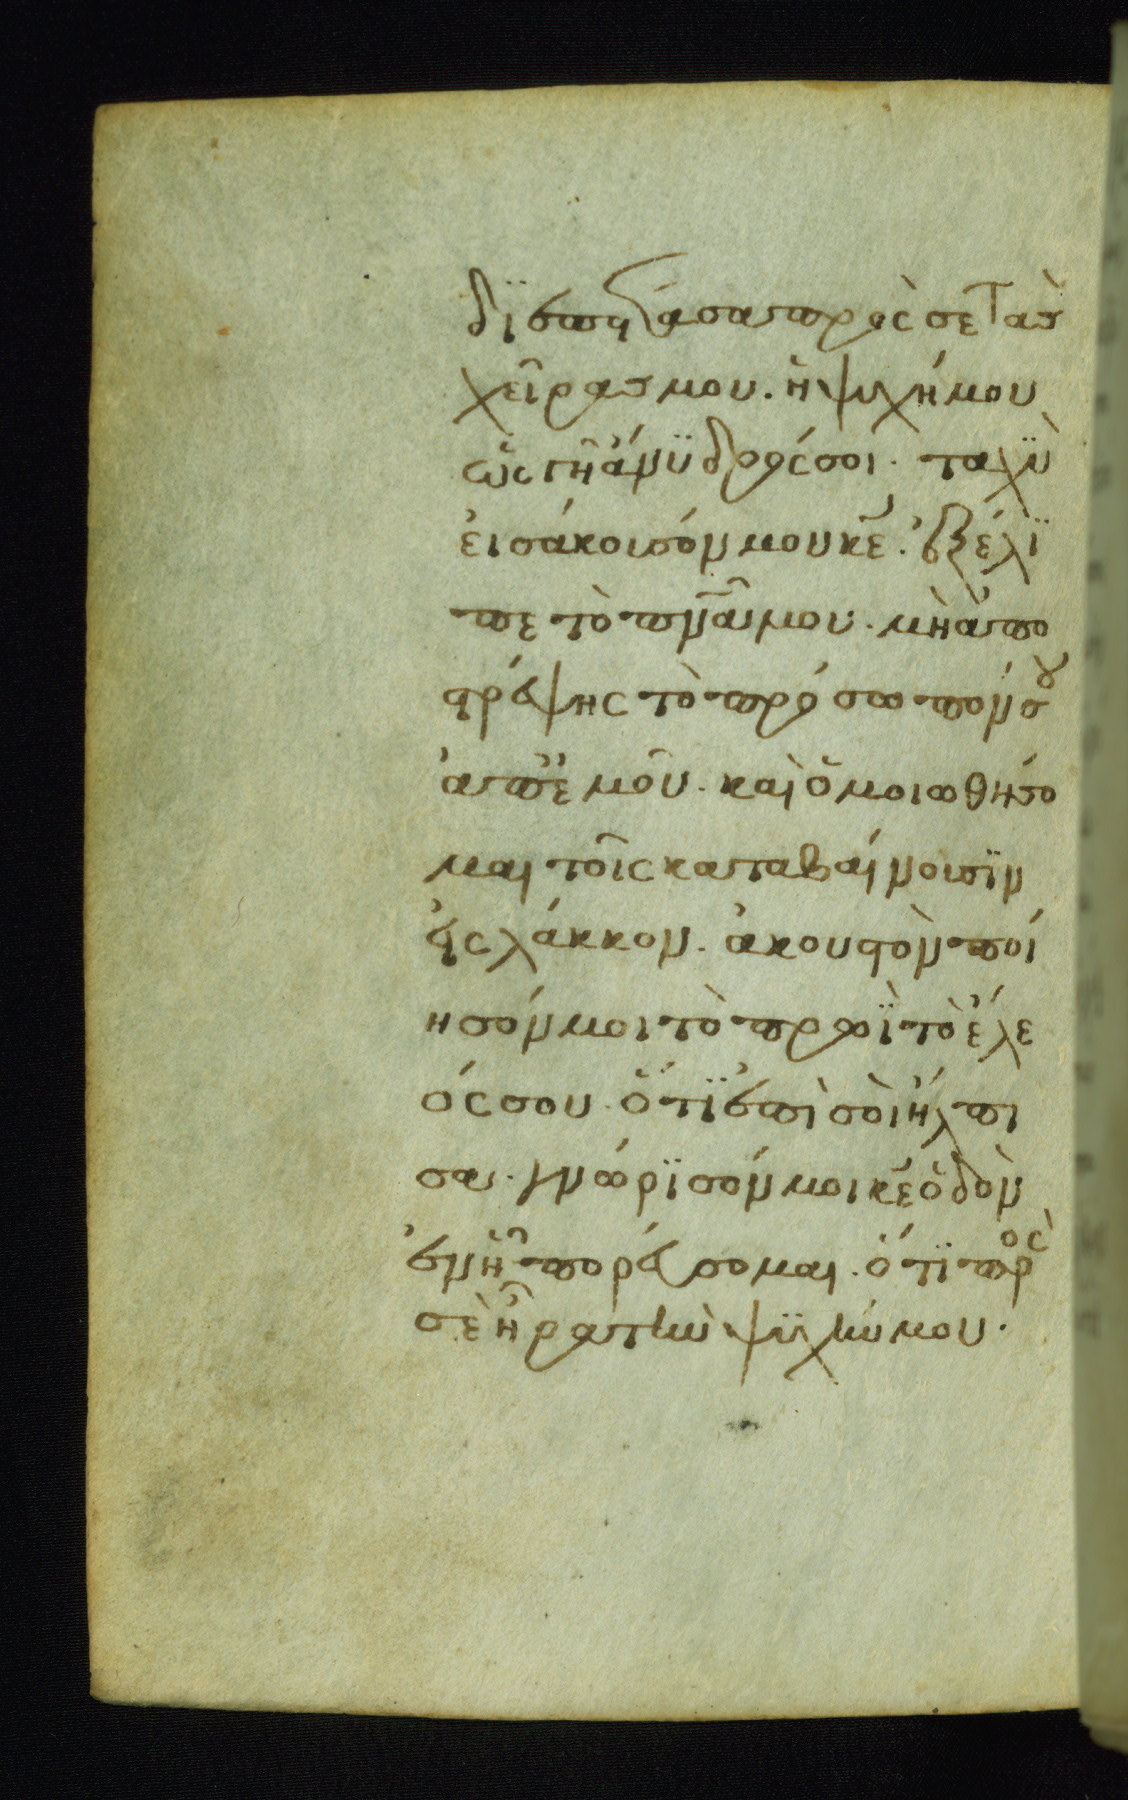 δϊεπέτασα πρὸς σὲ τὰς
χεῖρας μου. ἡ ψυχή μου
ὡς γῆ ἄνϋδρός σοι. ταχῢ
εἰσάκοισόν μου κε̄. ἐξέλϊ
πε τὸ πνᾶ μου. μὴ ἀπο
στρέψης τὸ πρόσωπόν σου
ἀπ' ἐμοῦ. καὶ ὁμοιωθήσο
μαι τοῖς καταβαίνοισϊν
εἰς λάκκον. ἀκουστὸν ποί
ησόν μοι τὸ πρωϊ τὸ ἔλε
ός σου. ὅτϊ ἐπὶ σοὶ ἤλπι
σα. γνώρϊσόν μοι κε̄ ὁδὸν
ἐν ἧ πορεύσομαι. ὅτϊ πρὸς
σὲ ἦρα τὴν ψϋχήν μου.